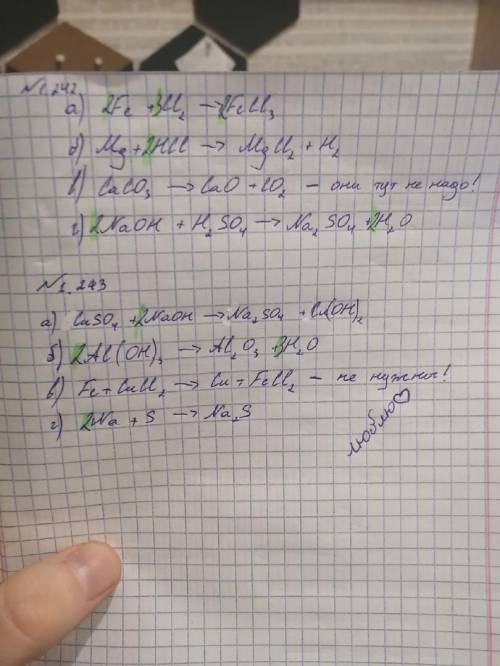 №1.242
а) 2Fe + 3Cl₂ → 2FeCl₃
б) Mg + 2HCl → MgCl₂ + H₂
в) CaCO₃ → CaO + CO₂ – они тут не надо!
г) 2NaOH + H₂SO₄ → Na₂SO₄ + 2H₂O
№1.243
а) CuSO₄ + 2NaOH → Na₂SO₄ + Cu(OH)₂
б) 2Al(OH)₃ → Al₂O₃ + 3H₂O
в) Fe + CuCl₂ → Cu + FeCl₂ – не нужны!
г) 2Na + S → Na₂S
люблю♡